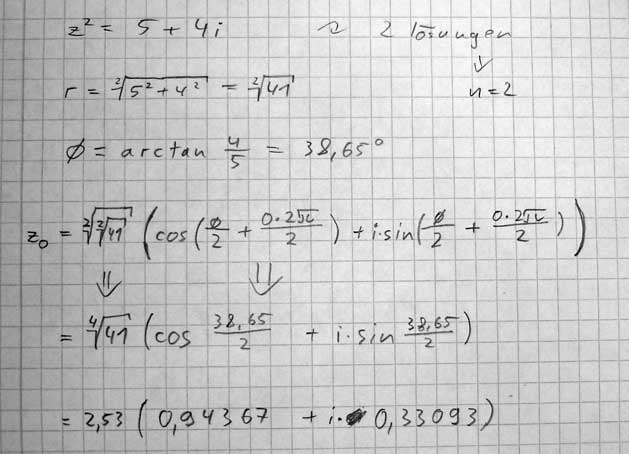 z² = 5 + 4i ~ 2 lösungen
⇓
r = ²√(5² + 4²) = ²√41 n = 2
φ = arctan 4/5 = 38,65°
z₀ = ²√(²√41) (cos(φ/2 + 0·2π/2) + i·sin(φ/2 + 0·2π/2))
⇓ ⇓
= ⁴√41 (cos 38,65/2 + i·sin 38,65/2)
= 2,53 (0,94367 + i· 0,33093)